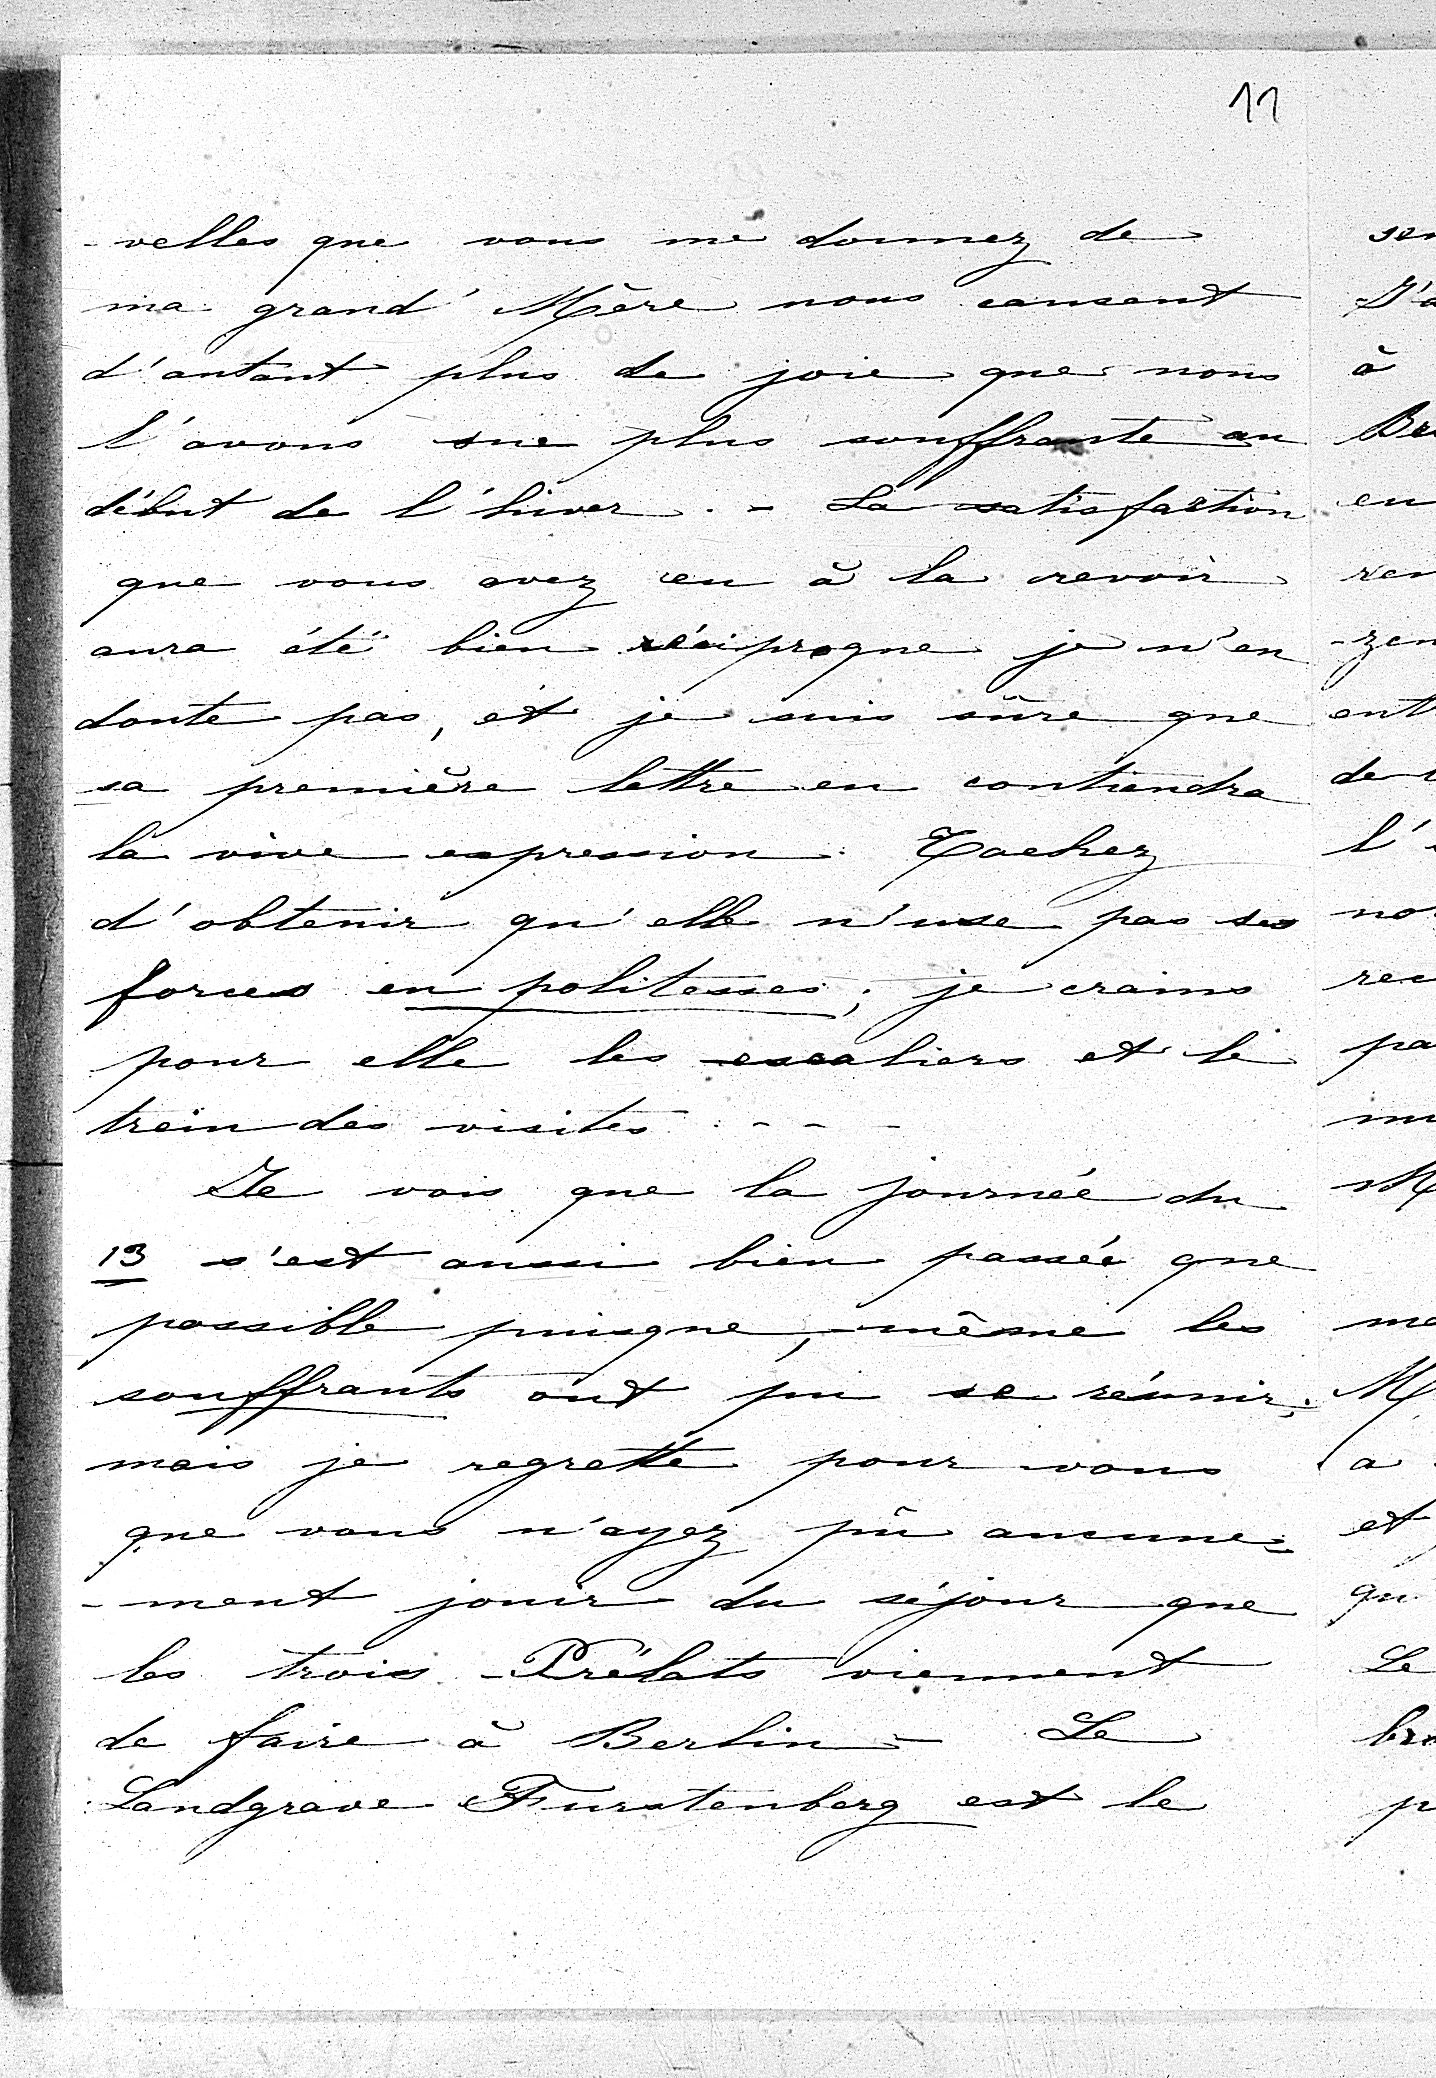 11
-velles que vous me donnez de
ma grand' Mère nous causent
d'autant plus de joie que nous
l'avons sue plus souffrante au
début de l'hiver. - La satisfaction
que vous avez eu à la revoir
aura été bien réciproque je n'en
doute pas, et je suis sûre que
sa première lettre en contiendra
la vive expression. Tachez
d'obtenir qu'elle n'use pas ses
forces en politesses; je crains
pour elle les escaliers et le
train des visites. - - -
Je vois que la journée du
13 s'est aussi bien passée que
possible puisque, même les
souffrants ont pu se réunir;
mais je regrette pour vous
que vous n'ayez pû aucune-
-ment jouir du séjour que
les trois Prélats viennent
de faire à Berlin - Le
Landgrave Furstenberg est le